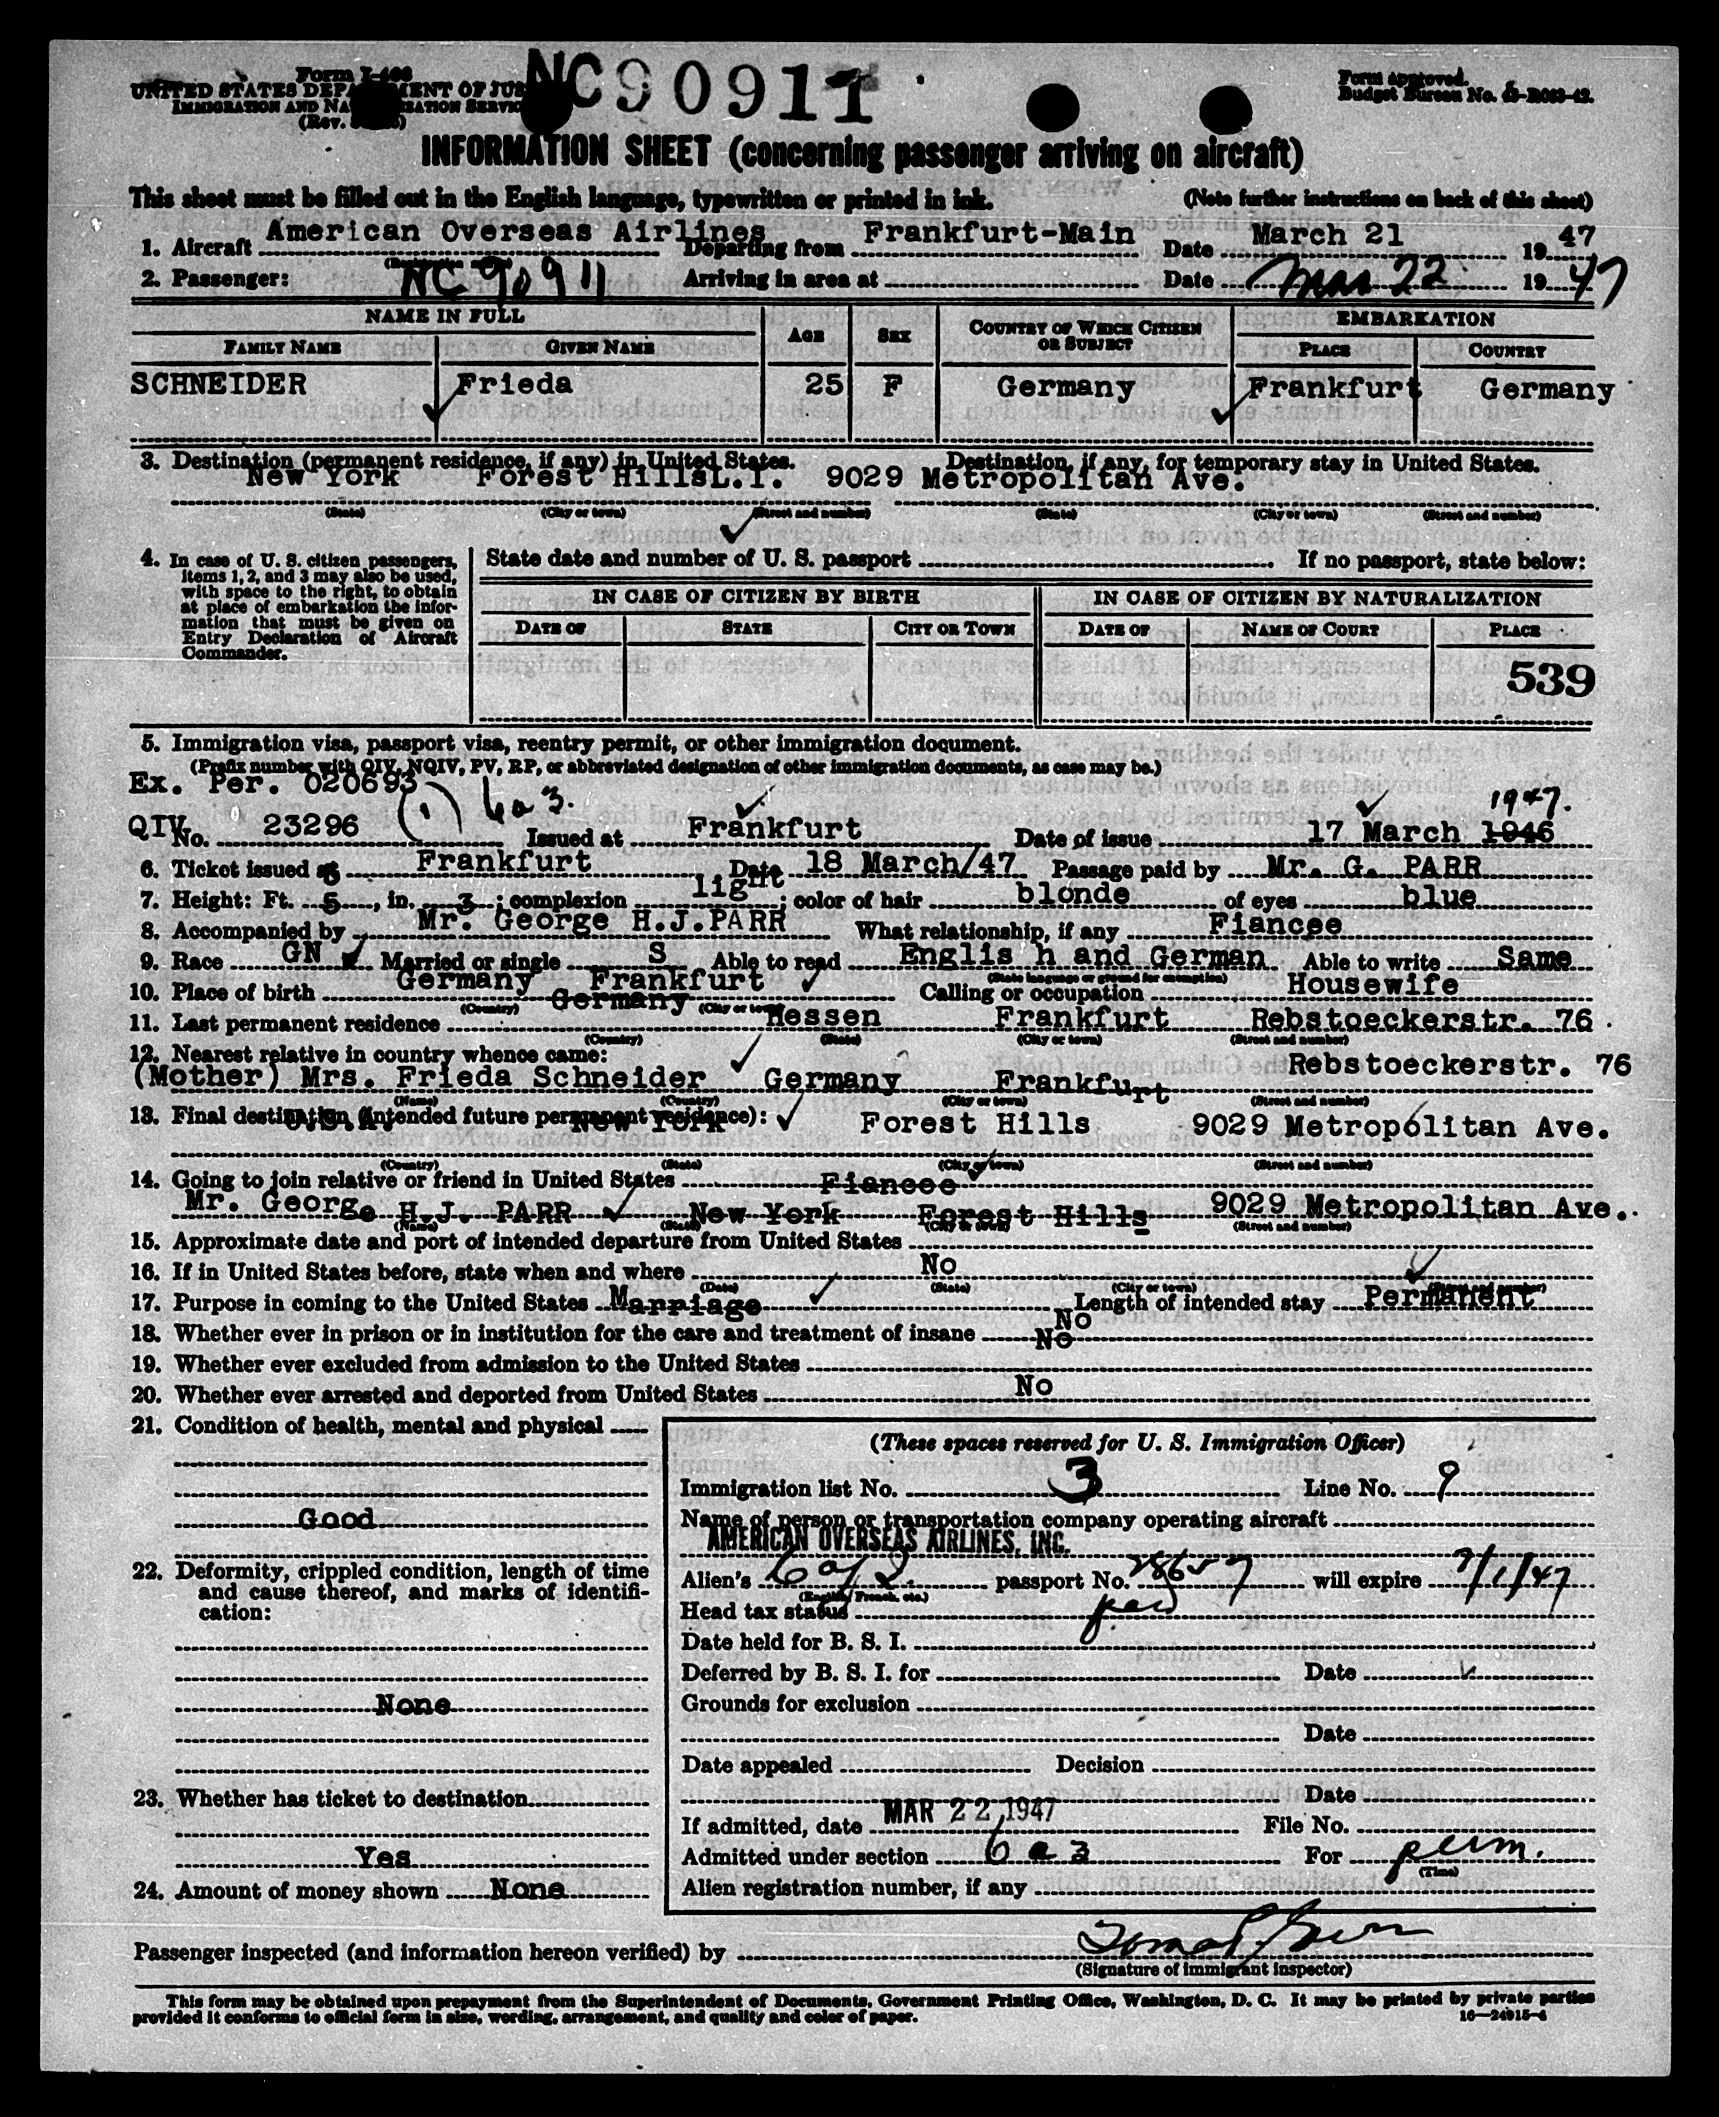 Form I-466
UNITED STATES DEPARTMENT OF JUSTICE
IMMIGRATION AND NATURALIZATION SERVICE
(Rev.
NC90911
Form approved.
Budget Bureau No. 43-R083-42.
INFORMATION SHEET (concerning passenger arriving on aircraft)
This sheet must be filled out in the English language, typewritten or printed in ink. (Note further instructions on back of this sheet)
1. Aircraft American Overseas Airlines Departing from Frankfurt-Main Date March 21 1947
2. Passenger: NC 90911 Arriving in area at Date Mar 22 1947
NAME IN FULL AGE SEX COUNTRY OF WHICH CITIZEN OR SUBJECT EMBARKATION
FAMILY NAME GIVEN NAME PLACE COUNTRY
SCHNEIDER Frieda 25 F Germany Frankfurt Germany
3. Destination (permanent residence, if any) in United States. Destination, if any, for temporary stay in United States.
New York Forest HillsL.I. 9029 Metropolitan Ave.
(State) (City or town) (Street and number) (State) (City or town) (Street and number)
4. In case of U. S. citizen passengers, items 1, 2, and 3 may also be used, with space to the right, to obtain at place of embarkation the information that must be given on Entry Declaration of Aircraft Commander.
State date and number of U. S. passport If no passport, state below:
IN CASE OF CITIZEN BY BIRTH IN CASE OF CITIZEN BY NATURALIZATION
DATE OF STATE CITY OR TOWN DATE OF NAME OF COURT PLACE
539
5. Immigration visa, passport visa, reentry permit, or other immigration document.
(Prefix number with QIV, NQIV, PV, RP, or abbreviated designation of other immigration documents, as case may be.)
Ex. Per. 020693 (1) 6a3. 1947.
QIV No. 23296 Issued at Frankfurt Date of issue 17 March 1946
6. Ticket issued at Frankfurt Date 18 March/47 Passage paid by Mr. G. PARR
7. Height: Ft. 5, in. 3; complexion light; color of hair blonde of eyes blue
8. Accompanied by Mr. George H.J.PARR What relationship, if any Fiancee
9. Race GN Married or single S Able to read Englis h and German Able to write Same
(State language or ground for exemption)
10. Place of birth Germany Frankfurt Calling or occupation Housewife
(Country) (City or town)
11. Last permanent residence Germany Hessen Frankfurt Rebstoeckerstr. 76
(Country) (State) (City or town) (Street and number)
12. Nearest relative in country whence came: Rebstoeckerstr. 76
(Mother) Mrs. Frieda Schneider Germany Frankfurt
(Name) (Country) (City or town) (Street and number)
13. Final destination (intended future permanent residence):
U.S.A. New York Forest Hills 9029 Metropolitan Ave.
(Country) (State) (City or town) (Street and number)
14. Going to join relative or friend in United States Fiancee
Mr. George H.J. PARR New York Forest Hills 9029 Metropolitan Ave.
(Name) (State) (City or town) (Street and number)
15. Approximate date and port of intended departure from United States
16. If in United States before, state when and where No
(Date) (State) (City or town) (Street and number)
17. Purpose in coming to the United States Marriage Length of intended stay Permanent
No
18. Whether ever in prison or in institution for the care and treatment of insane No
19. Whether ever excluded from admission to the United States
20. Whether ever arrested and deported from United States No
21. Condition of health, mental and physical
Good
22. Deformity, crippled condition, length of time and cause thereof, and marks of identification:
None
23. Whether has ticket to destination
Yes
24. Amount of money shown None
(These spaces reserved for U. S. Immigration Officer)
Immigration list No. 3 Line No. 9
Name of person or transportation company operating aircraft
AMERICAN OVERSEAS AIRLINES, INC.
Alien's passport No. 28657 will expire 7/1/47
(English, French, etc.)
Head tax status
Date held for B. S. I.
Deferred by B. S. I. for Date
Grounds for exclusion
Date
Date appealed Decision
Date
If admitted, date MAR 22 1947 File No.
Admitted under section 6 a 3 For perm.
(Time)
Alien registration number, if any
Passenger inspected (and information hereon verified) by
(Signature of immigrant inspector)
This form may be obtained upon prepayment from the Superintendent of Documents, Government Printing Office, Washington, D. C. It may be printed by private parties
provided it conforms to official form in size, wording, arrangement, and quality and color of paper. 16—24915-4